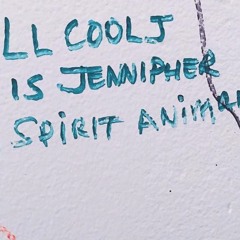 LL COOLJ
IS JENNIPHER
SPIRIT ANIMAL